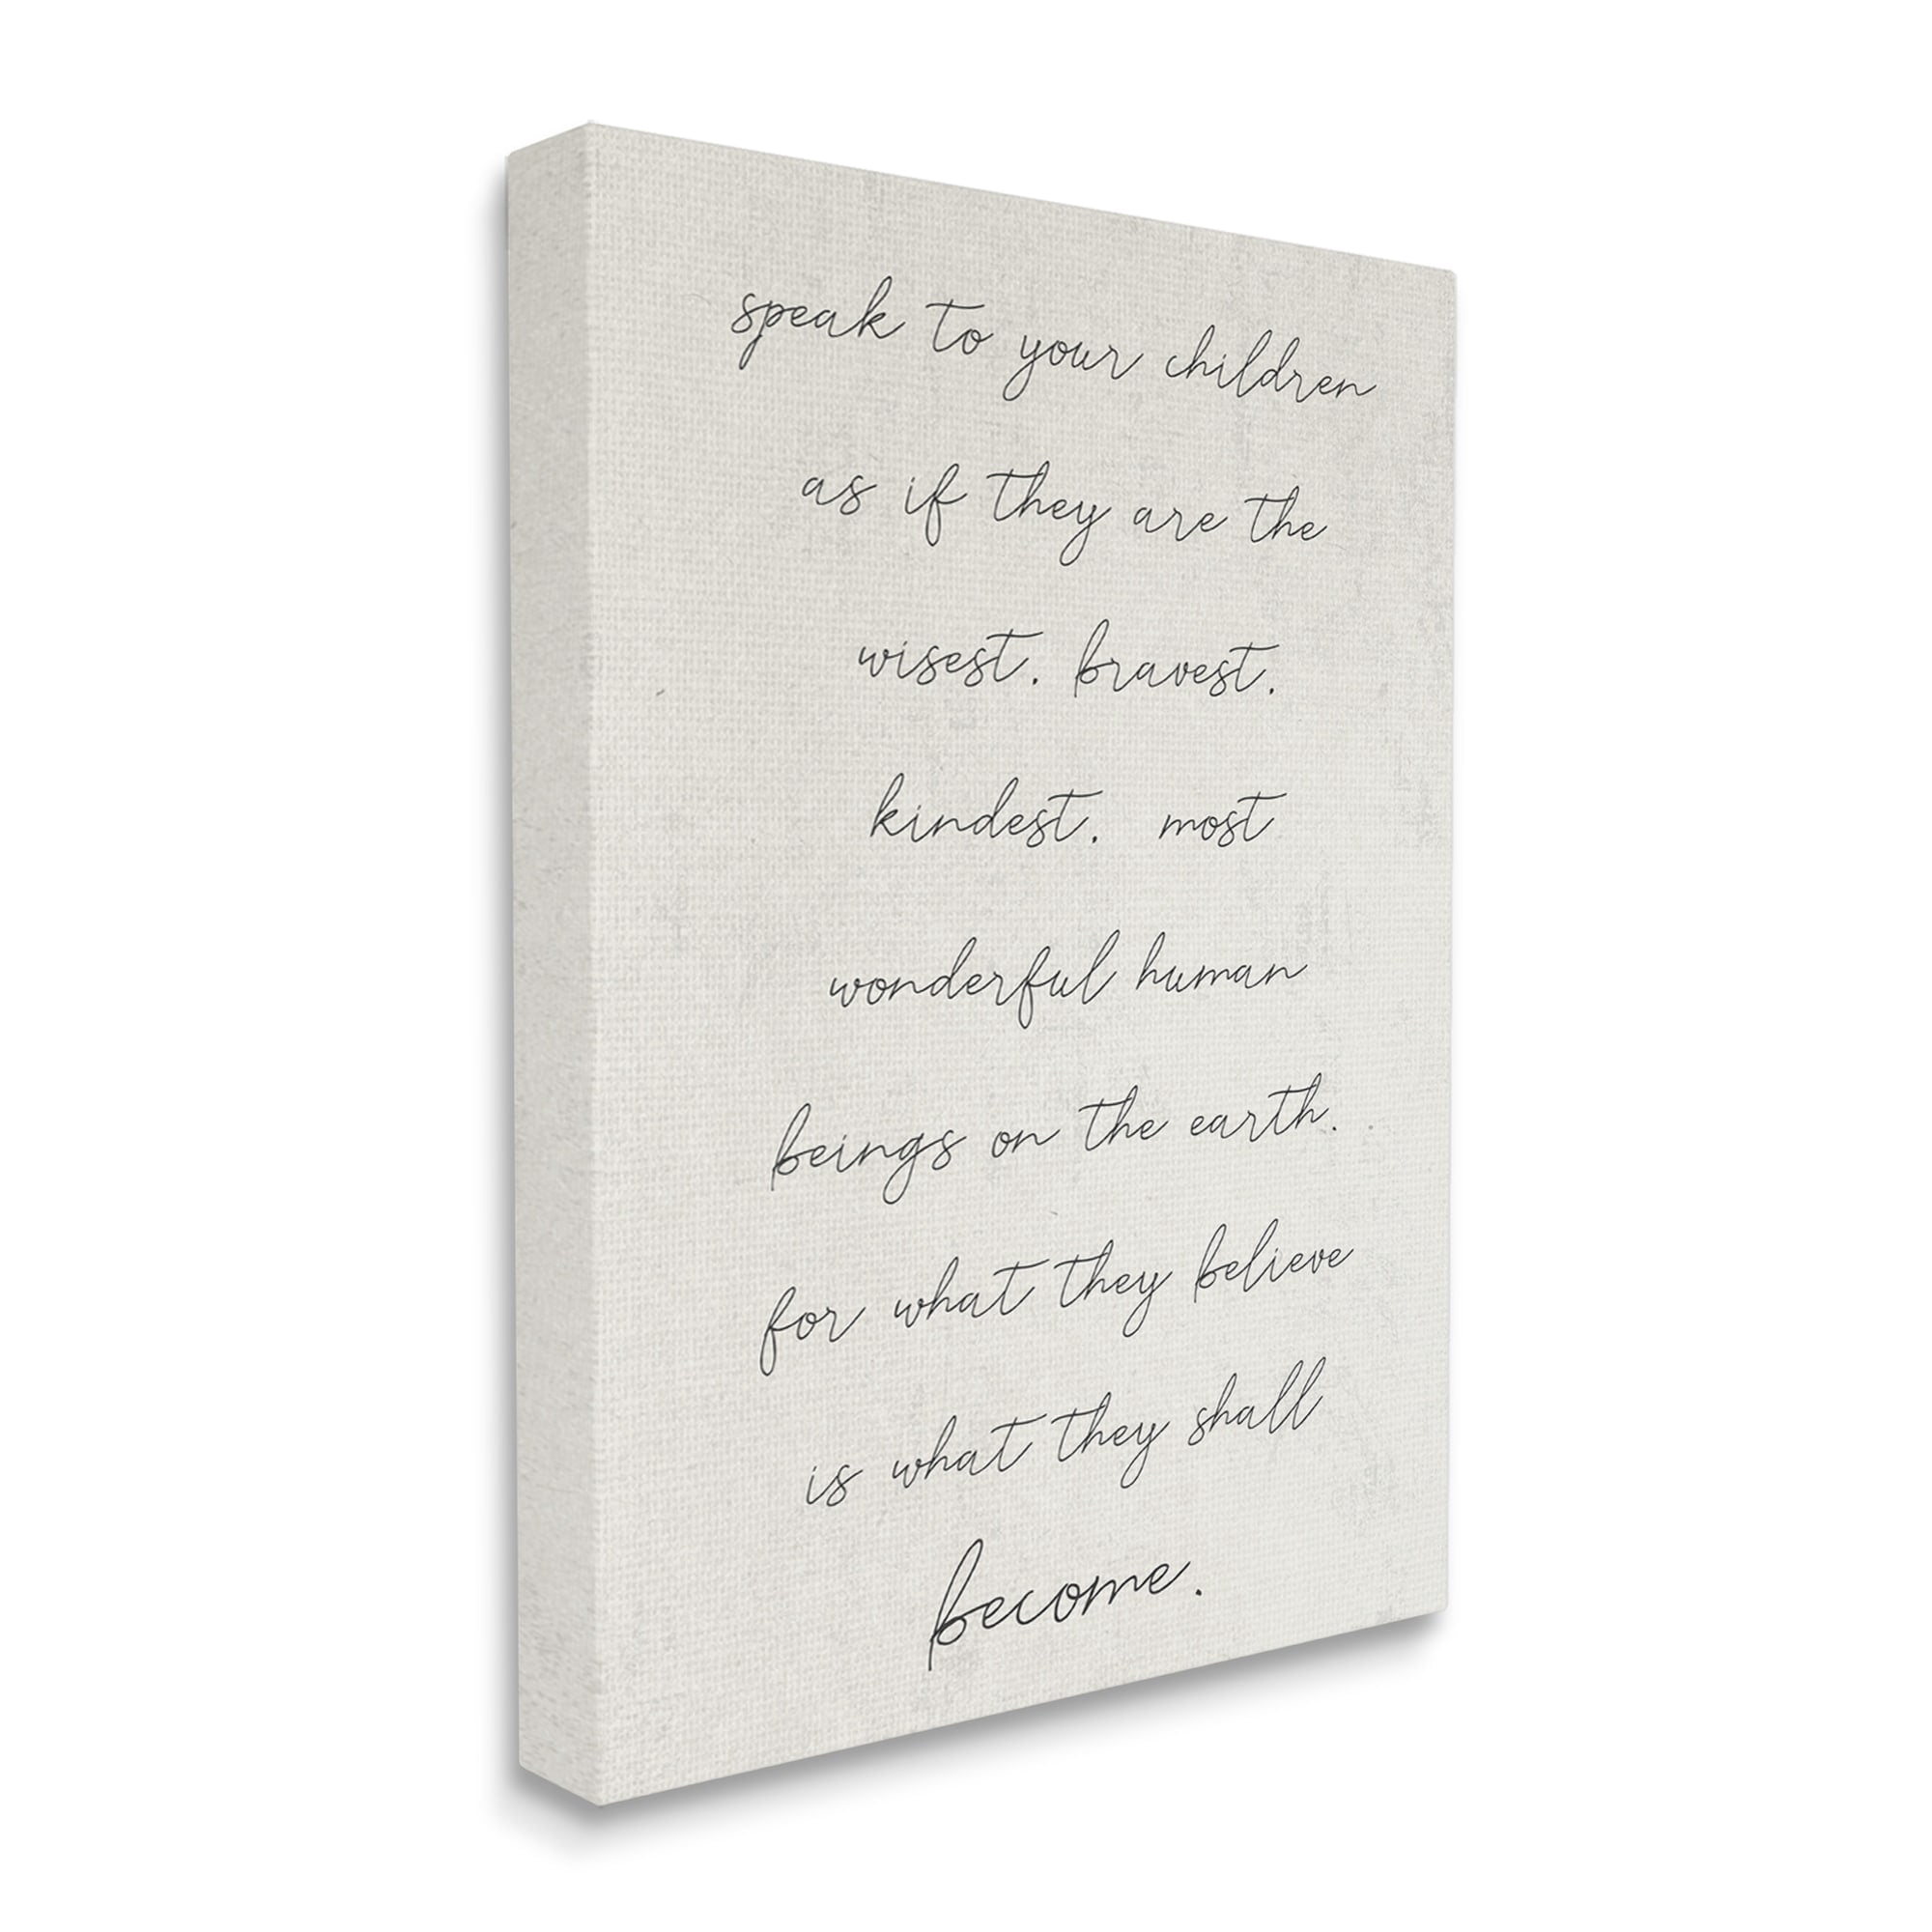 speak to your children
as if they are the
wisest. bravest.
kindest. most
wonderful human
beings on the earth.
for what they believe
is what they shall
become.